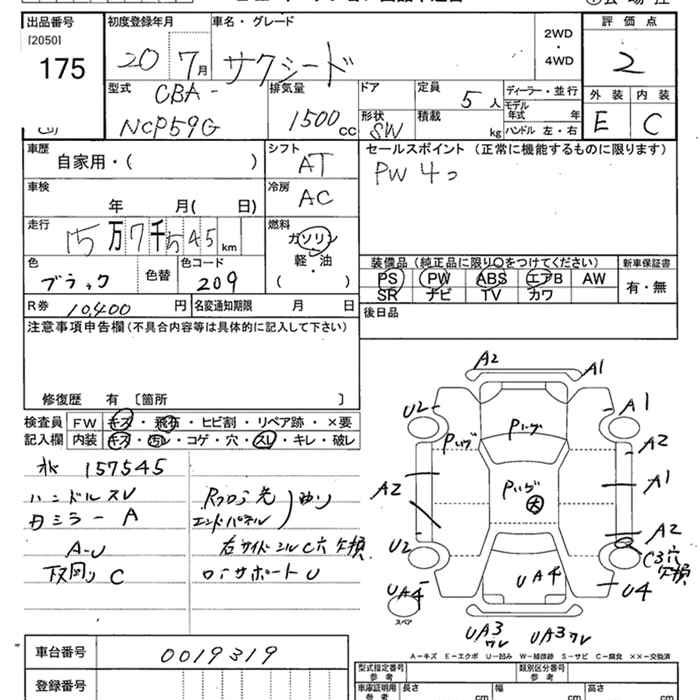 出品番号
[2050]
175
初度登録年月
20 7月
車名・グレード
サクシード
2WD
・
4WD
評価点
2
型式
CBA-
NCP59G
排気量
1500cc
ドア
形状
SW
定員
5人
積載
kg
ディーラー・並行
モデル
年式 年
ハンドル 左・右
外装 内装
E C
車歴
自家用・( )
シフト
AT
セールスポイント (正常に機能するものに限ります)
PW 4つ
車検
年 月( 日)
冷房
AC
走行
15万7千545km
燃料
ガソリン
軽・油
( )
色
ブラック
色替
色コード
209
装備品 (純正品に限り○をつけてください)
PS PW ABS エアB AW
SR ナビ TV カワ
新車保証書
有・無
R券 10,400円
名変通知期限 月 日
後日品
注意事項申告欄 (不具合内容等は具体的に記入して下さい)
修復歴 有 〔箇所 〕
検査員
記入欄
FW キズ・飛石・ヒビ割・リペア跡・×要
内装 キズ・汚レ・コゲ・穴・スレ・キレ・破レ
157545
ハンドルスレ
ミラー A
A-U
下回り C
エンドパネル
右サイドシルC穴欠損
ロアサポートU
A2
A1
U2
A1
Pいづ
Pいづ
A2
A2
Pいづ
大
A1
A2
U2
C3穴
欠損
UA4
UA4
U4
スペア
UA3
ワレ
UA3ワレ
A-キズ E-エクボ U-凹み W-補修跡 S-サビ C-腐食 ××-交換済
車台番号
0019319
登録番号
型式指定番号
参考
類別区分番号
参考
車庫証明用
参考
長さ cm
幅 cm
高さ cm